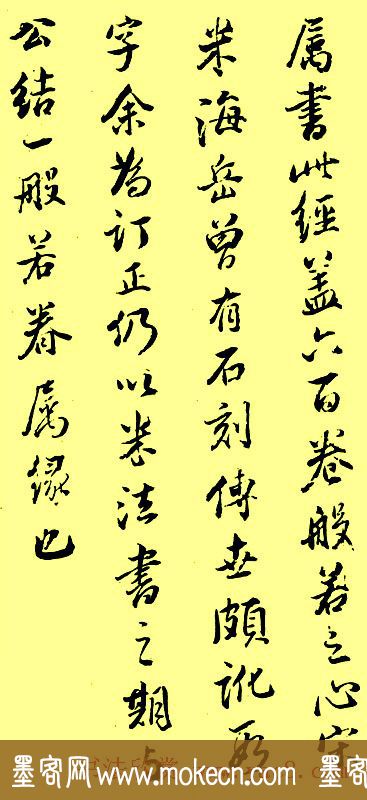 属書此經蓋六百卷般若之心宋
米海岳曾有石刻傳世頗訛
字余為订正仍以米法書之期与
公结一般若眷属缘也
墨客网 www.mokecn.com 墨客网